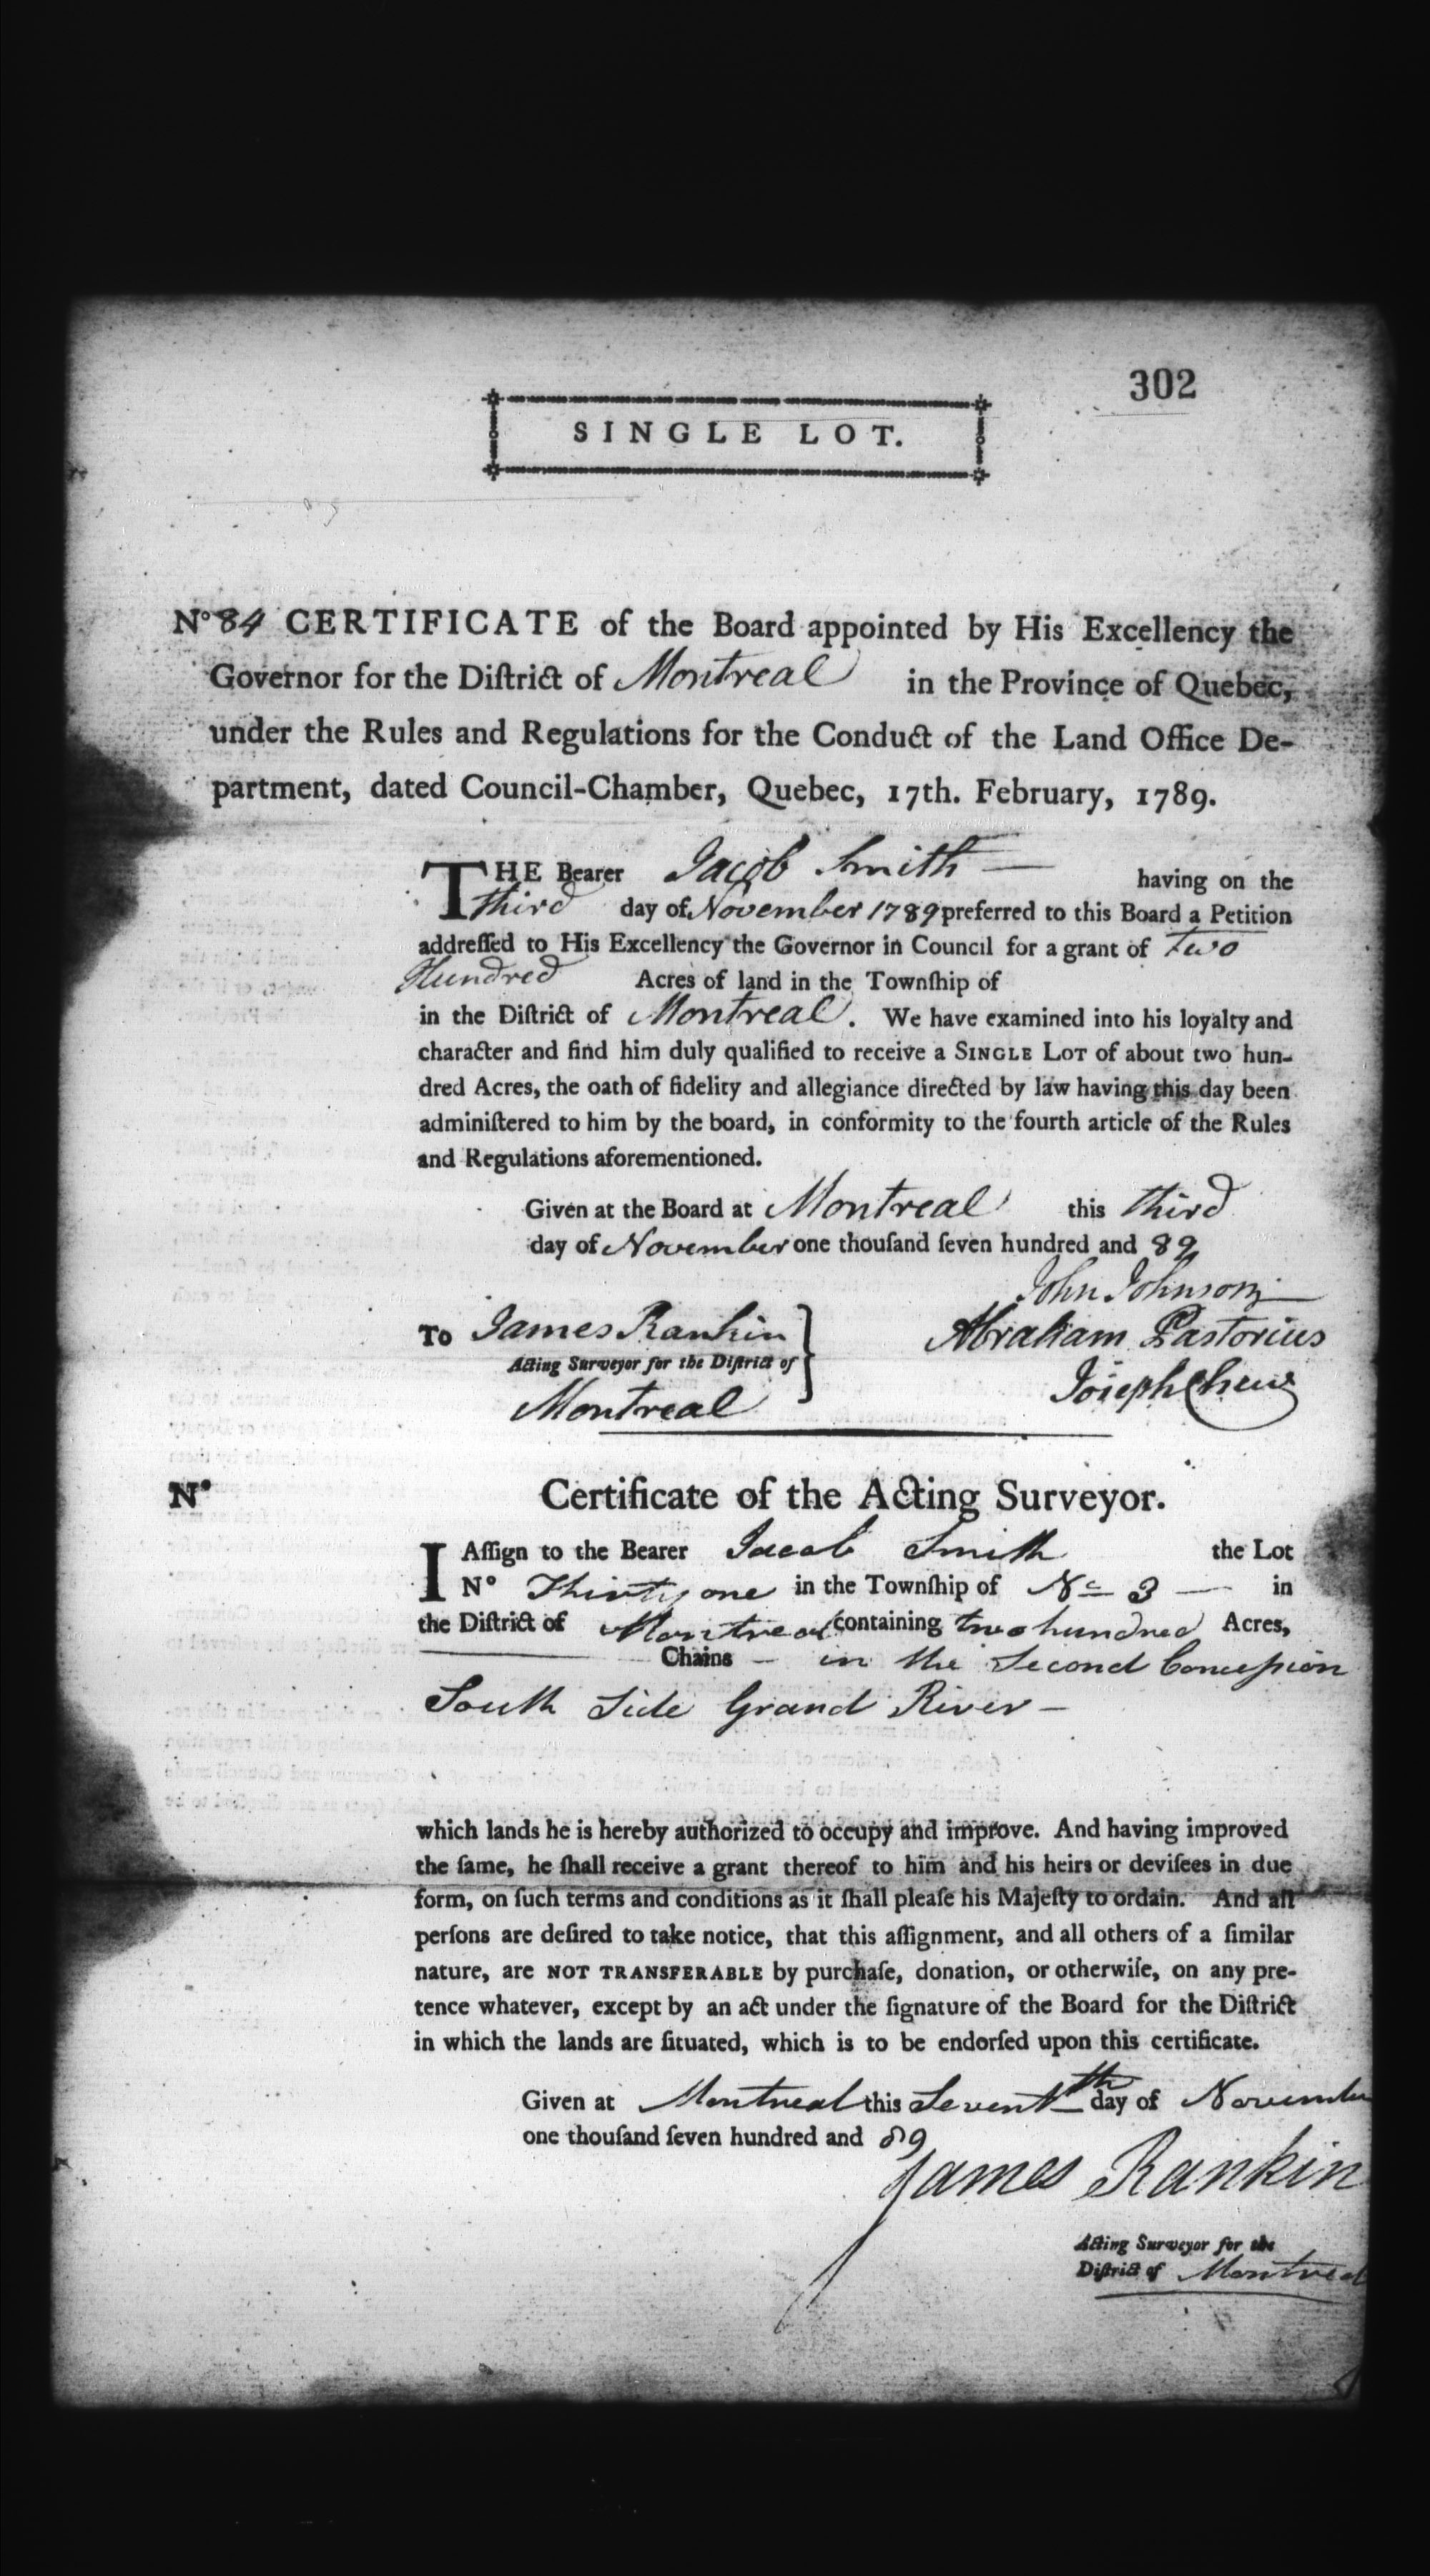 302
SINGLE LOT.
No 84 CERTIFICATE of the Board appointed by His Excellency the
Governor for the Diſtrict of Montreal in the Province of Quebec,
under the Rules and Regulations for the Conduct of the Land Office De-
partment, dated Council-Chamber, Quebec, 17th. February, 1789.
THE Bearer Jacob Smith — having on the
third day of November 1789 preferred to this Board a Petition
addreſſed to His Excellency the Governor in Council for a grant of two
Hundred Acres of land in the Townſhip of
in the Diſtrict of Montreal. We have examined into his loyalty and
character and find him duly qualified to receive a SINGLE LOT of about two hun-
dred Acres, the oath of fidelity and allegiance directed by law having this day been
adminiſtered to him by the board, in conformity to the fourth article of the Rules
and Regulations aforementioned.
Given at the Board at Montreal this third
day of November one thouſand ſeven hundred and 89
John Johnson
To James Rankin
Abraham Pastorius
Acting Surveyor for the Diſtrict of
Joseph Chew
Montreal
No Certificate of the Acting Surveyor.
I Aſſign to the Bearer Jacob Smith the Lot
No Thirty one in the Townſhip of No 3 — in
the Diſtrict of Montreal containing two hundred Acres,
Chains – in the Second Conceſsion
South Side Grand River –
which lands he is hereby authorized to occupy and improve. And having improved
the ſame, he ſhall receive a grant thereof to him and his heirs or deviſees in due
form, on ſuch terms and conditions as it ſhall pleaſe his Majeſty to ordain. And all
perſons are deſired to take notice, that this aſſignment, and all others of a ſimilar
nature, are NOT TRANSFERABLE by purchaſe, donation, or otherwiſe, on any pre-
tence whatever, except by an act under the ſignature of the Board for the Diſtrict
in which the lands are ſituated, which is to be endorſed upon this certificate.
Given at Montreal this Seventh day of November
one thouſand ſeven hundred and 89
James Rankin
Acting Surveyor for the
Diſtrict of Montreal